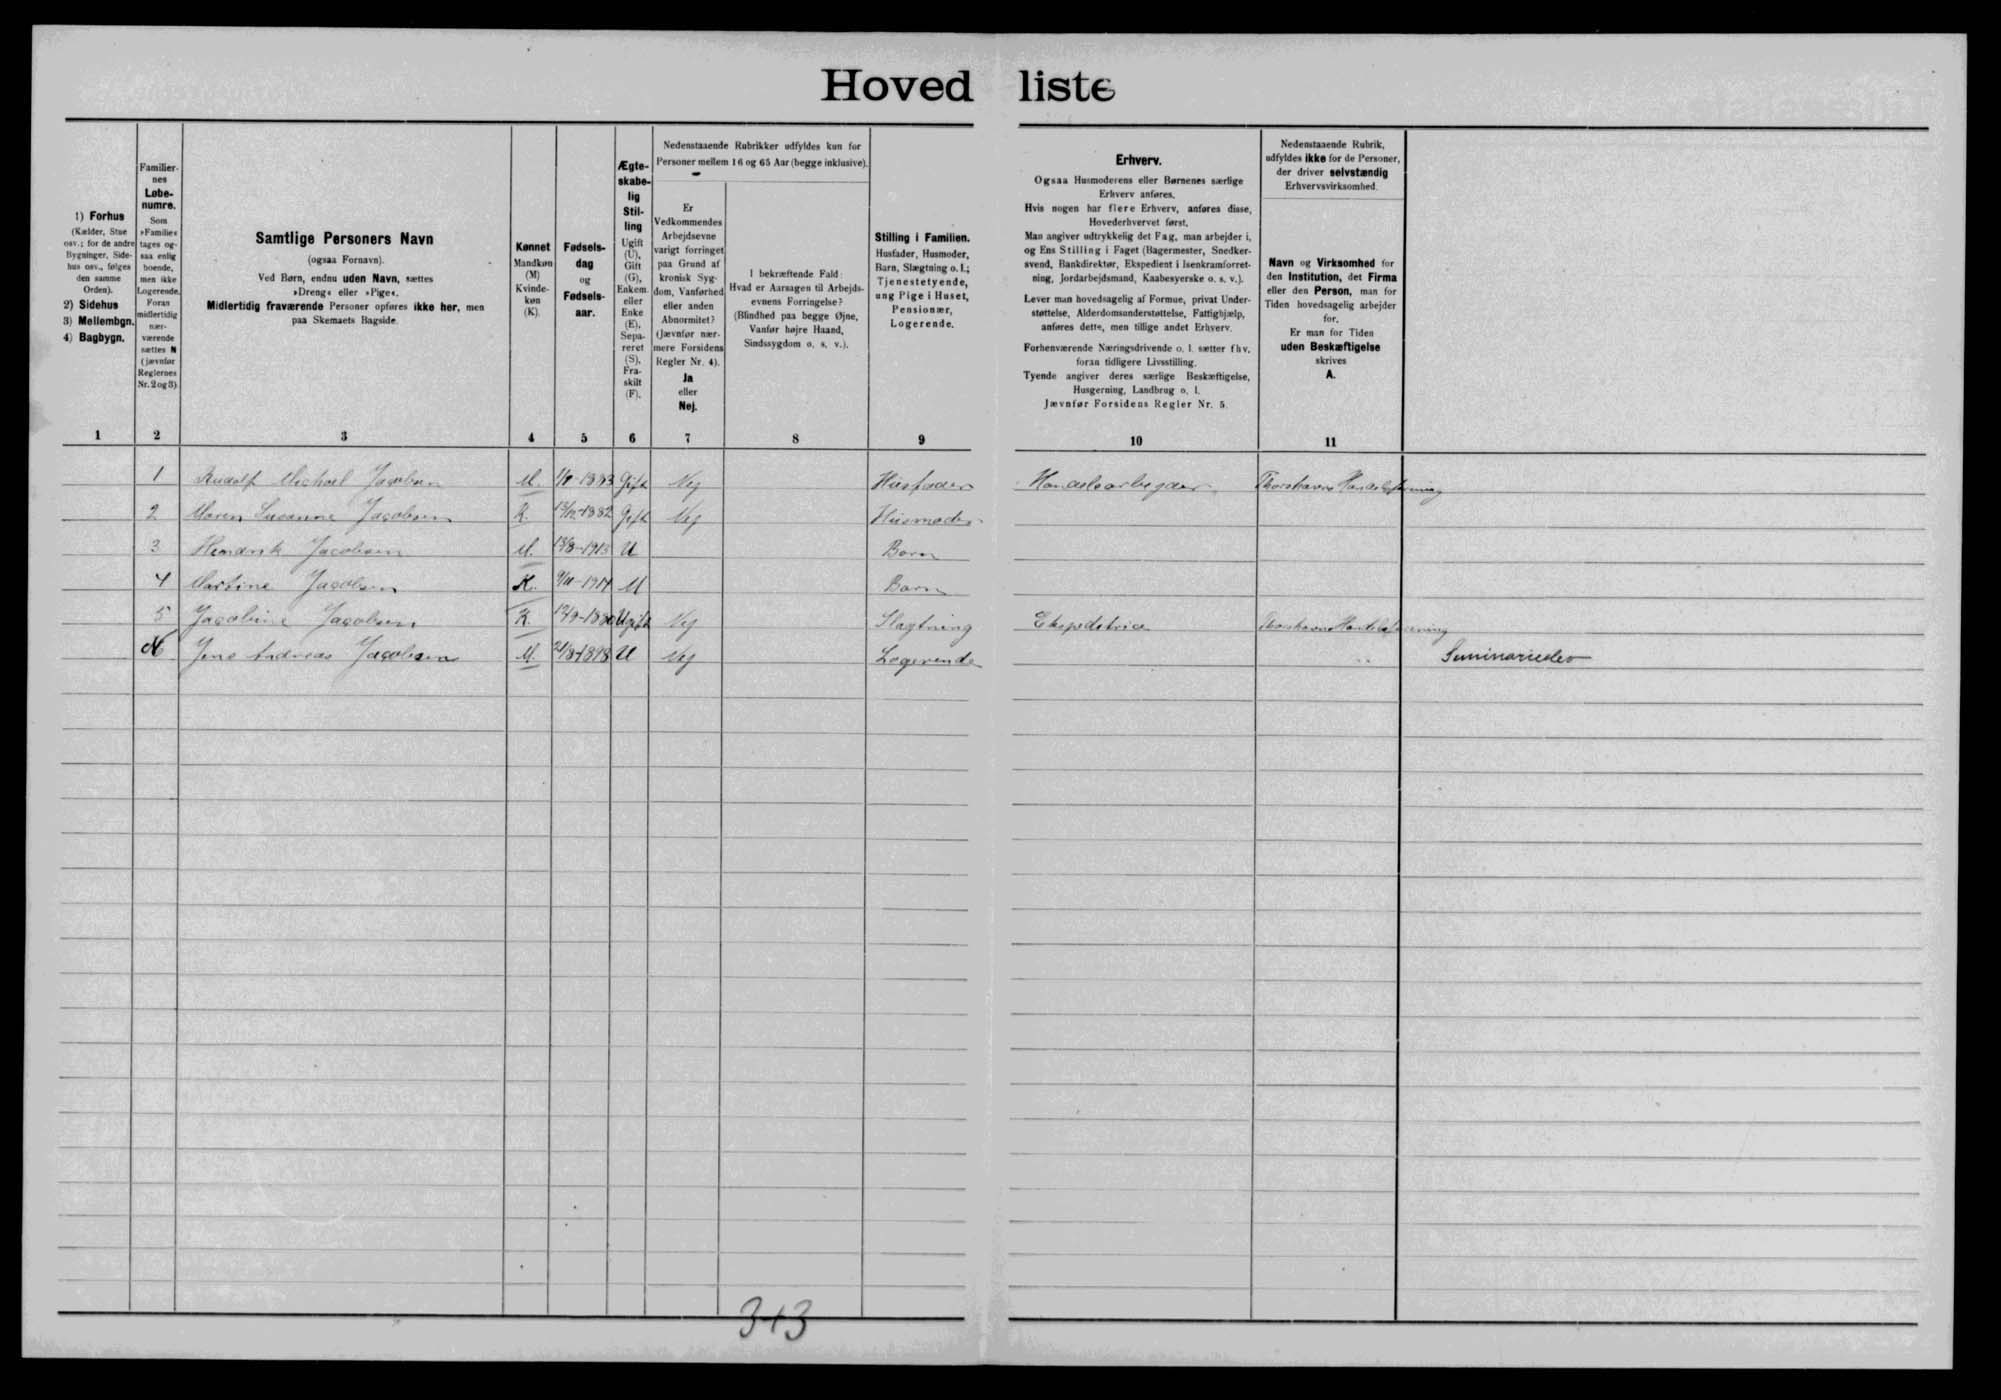 Hovedliste
1) Forhus
(Kælder, Stue
osv.; for de andre
Bygninger, Side-
hus osv., følges
den samme
Orden).
2) Sidehus
3) Mellembgn.
4) Bagbygn.
Familier-
nes
Løbe-
numre.
Som
»Familie«
tages og-
saa enlig
boende,
men ikke
Logerende.
Foran
midlertidig
nær-
værende
sættes N
(jævnfør
Reglernes
Nr. 2 og 3)
Samtlige Personers Navn
(ogsaa Fornavn).
Ved Børn, endnu uden Navn, sættes
»Dreng« eller »Pige«.
Midlertidig fraværende Personer opføres ikke her, men
paa Skemaets Bagside.
Kønnet
Mandkøn
(M)
Kvinde-
køn
(K).
Fødsels-
dag
og
Fødsels-
aar.
Ægte-
skabe-
lig
Stil-
ling
Ugift
(U),
Gift
(G),
Enkem.
eller
Enke
(E),
Sepa-
reret
(S),
Fra-
skilt
(F).
Nedenstaaende Rubrikker udfyldes kun for
Personer mellem 16 og 65 Aar (begge inklusive).
Er
Vedkommendes
Arbejdsevne
varigt forringet
paa Grund af
kronisk Syg-
dom, Vanførhed
eller anden
Abnormitet?
(Jævnfør nær-
mere Forsidens
Regler Nr. 4).
Ja
eller
Nej.
I bekræftende Fald:
Hvad er Aarsagen til Arbejds-
evnens Forringelse?
(Blindhed paa begge Øjne,
Vanfør højre Haand,
Sindssygdom o. s. v.).
Stilling i Familien.
Husfader, Husmoder,
Barn, Slægtning o. l.;
Tjenestetyende,
ung Pige i Huset,
Pensionær,
Logerende.
Erhverv.
Ogsaa Husmoderens eller Børnenes særlige
Erhverv anføres.
Hvis nogen har flere Erhverv, anføres disse,
Hovederhvervet først.
Man angiver udtrykkelig det Fag, man arbejder i,
og Ens Stilling i Faget (Bagermester, Snedker-
svend, Bankdirektør, Ekspedient i Isenkramforret-
ning, Jordarbejdsmand, Kaabesyerske o. s. v.).
Lever man hovedsagelig af Formue, privat Under-
støttelse, Alderdomsunderstøttelse, Fattighjælp,
anføres dette, men tillige andet Erhverv.
Forhenværende Næringsdrivende o. l. sætter fhv.
foran tidligere Livsstilling.
Tyende angiver deres særlige Beskæftigelse,
Husgerning, Landbrug o. l.
Jævnfør Forsidens Regler Nr. 5.
Nedenstaaende Rubrik,
udfyldes ikke for de Personer,
der driver selvstændig
Erhvervsvirksomhed.
Navn og Virksomhed for
den Institution, det Firma
eller den Person, man for
Tiden hovedsagelig arbejder
for.
Er man for Tiden
uden Beskæftigelse
skrives
A.
1 2 3 4 5 6 7 8 9 10 11
1 Rudolf Michael Jacobsen M. 1883 Gift Nej Husfader Handelsarbejder Thorshavns Handelsforening
2 Maren Susanne Jacobsen K. 1882 Gift Nej Husmoder
3 Hendrik Jacobsen M. 1913 U Barn
4 Martine Jacobsen K. U Barn
5 Jacobine Jacobsen K. Ugift Nej Slægtning Ekspeditrice Thorshavns Handelsforening
N Jens Andreas Jacobsen M. 1898 U Nej Logerende Seminarieelev
3+3